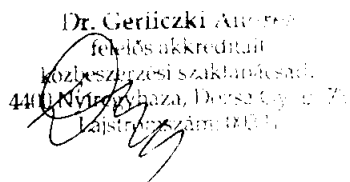 Dr. Gerliczki
felelős akkreditált
közbeszerzési szaktanácsadó
4400 Nyíregyháza, Dózsa Gy. u.
Lajstromszám: